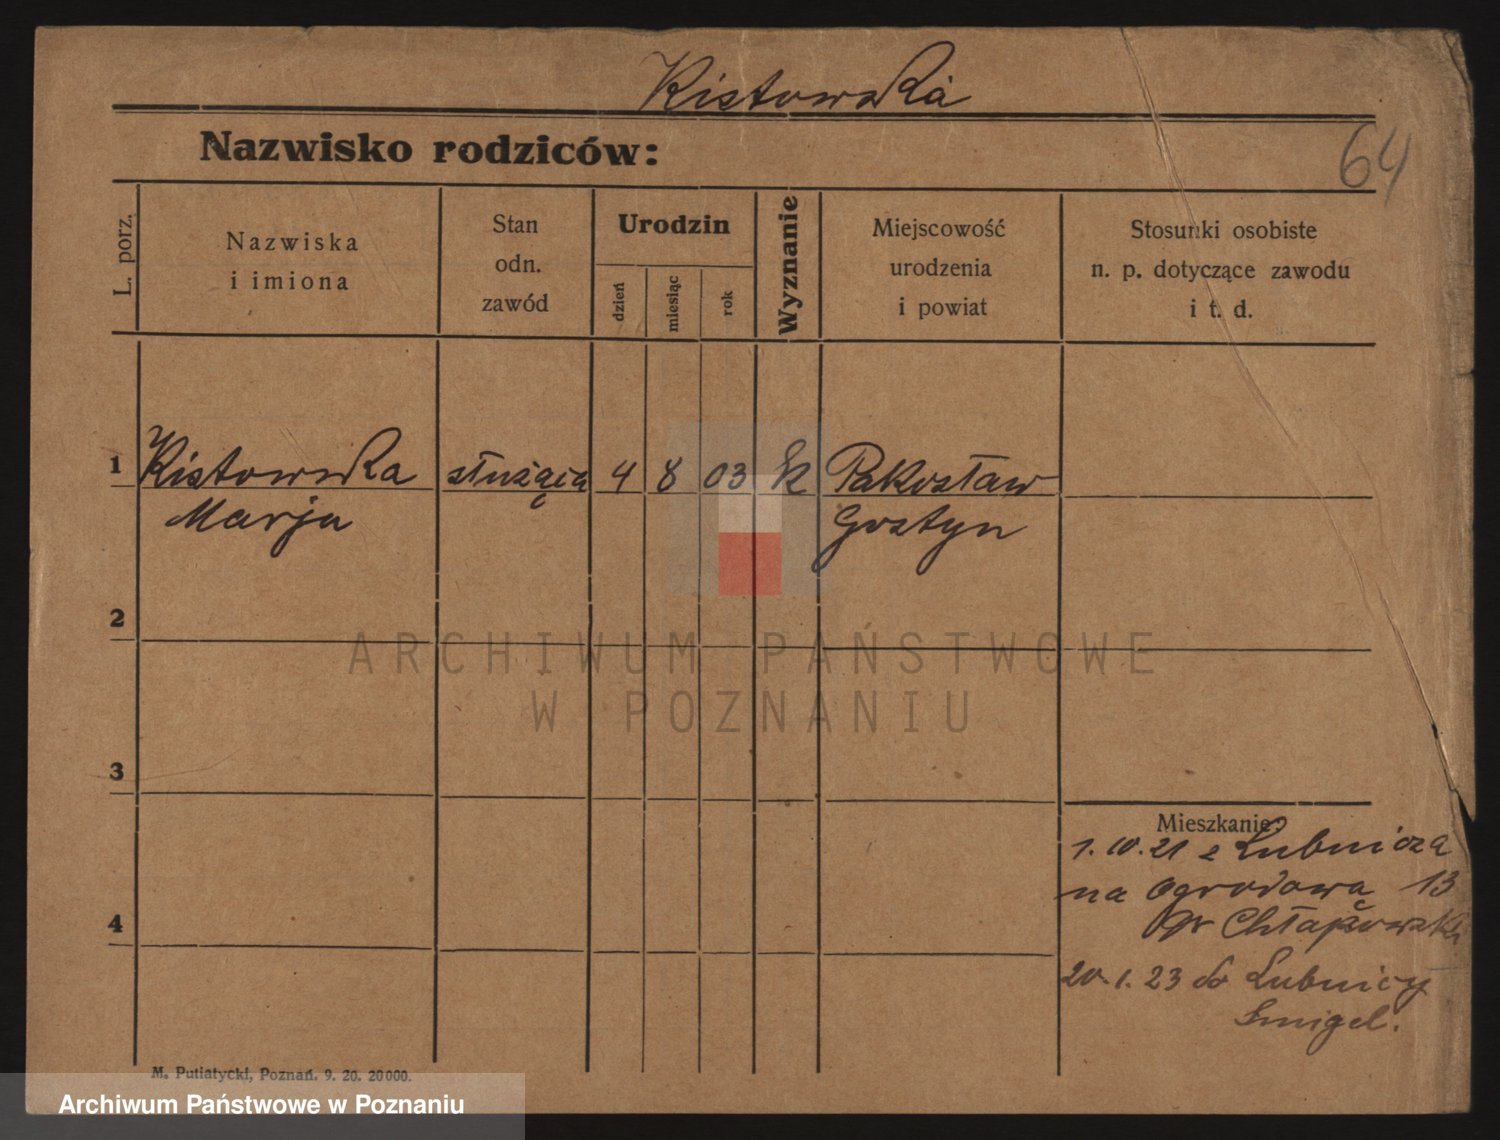 Kistowska
Nazwisko rodziców:
64
L. porz.
Nazwiska
i imiona
Stan
odn.
zawód
Urodzin
dzień
miesiąc
rok
Wyznanie
Miejscowość
urodzenia
i powiat
Stosunki osobiste
n. p. dotyczące zawodu
i t. d.
1 Kistowska służąca 4 8 03 k Pakosław
Marja Gostyn
2
ARCHIWUM PAŃSTWOWE
W POZNANIU
3
Mieszkanie:
1.10.21 z Lubnicza
na Ogrodową 13
Chłapowski
4
20.1.23 do Lubnicy
Smigel.
M. Putiatycki, Poznań. 9. 20. 20000.
Archiwum Państwowe w Poznaniu